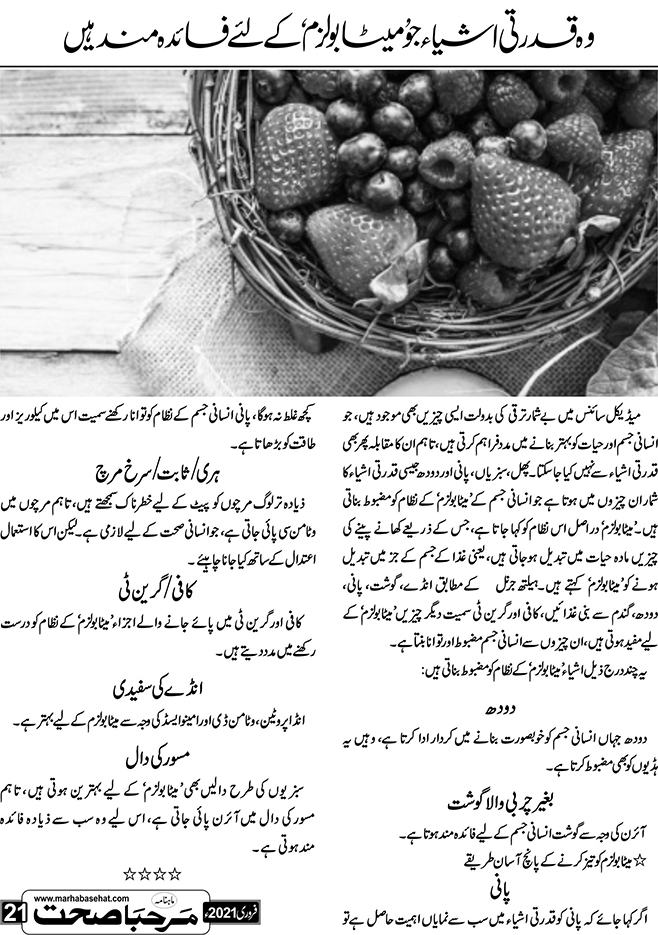 وہ قدرتی اشیاء جو ’میٹا بولزم‘ کے لئے فائدہ مند ہیں
میڈیکل سائنس میں بے شمار ترقی کی بدولت ایسی چیزیں بھی موجود ہیں، جو
انسانی جسم اور حیات کو بہتر بنانے میں مدد فراہم کرتی ہیں، تاہم ان کا مقابلہ پھر بھی
قدرتی اشیاء سے نہیں کیا جا سکتا۔ پھل، سبزیاں، پانی اور دودھ جیسی قدرتی اشیاء کا
شمار ان چیزوں میں ہوتا ہے جو انسانی جسم کے ’میٹا بولزم‘ کے نظام کو مضبوط بناتی
ہیں۔ ’میٹا بولزم‘ دراصل اس نظام کو کہا جاتا ہے، جس کے ذریعے کھانے پینے کی
چیزیں مادہ حیات میں تبدیل ہو جاتی ہیں، یعنی غذا کے جسم کے جز میں تبدیل
ہونے کو ’میٹا بولزم‘ کہتے ہیں۔ ہیلتھ جرنل کے مطابق انڈے، گوشت، پانی،
دودھ، گندم سے بنی غذائیں، کافی اور گرین ٹی سمیت دیگر چیزیں ’میٹا بولزم‘ کے
لیے مفید ہوتی ہیں، ان چیزوں سے انسانی جسم مضبوط اور توانا بنتا ہے۔
یہ چند درج ذیل اشیاء ’میٹا بولزم‘ کے نظام کو مضبوط بناتی ہیں:
دودھ
دودھ جہاں انسانی جسم کو خوبصورت بنانے میں کردار ادا کرتا ہے، وہیں یہ
ہڈیوں کو بھی مضبوط کرتا ہے۔
بغیر چربی والا گوشت
آئرن کی وجہ سے گوشت انسانی جسم کے لیے فائدہ مند ہوتا ہے۔
☆ میٹا بولزم کو تیز کرنے کے پانچ آسان طریقے
پانی
اگر کہا جائے کہ پانی کو قدرتی اشیاء میں سب سے نمایاں اہمیت حاصل ہے تو
کچھ غلط نہ ہوگا، پانی انسانی جسم کے نظام کو توانا رکھنے سمیت اس میں کیلوریز اور
طاقت کو بڑھاتا ہے۔
ہری/ثابت/سرخ مرچ
زیادہ تر لوگ مرچوں کو پیٹ کے لیے خطرناک سمجھتے ہیں، تاہم مرچوں میں
وٹامن سی پائی جاتی ہے، جو انسانی صحت کے لیے لازمی ہے۔ لیکن اس کا استعمال
اعتدال کے ساتھ کیا جانا چاہیئے۔
کافی/گرین ٹی
کافی اور گرین ٹی میں پائے جانے والے اجزاء ’میٹا بولزم‘ کے نظام کو درست
رکھنے میں مدد دیتے ہیں۔
انڈے کی سفیدی
انڈا پروٹین، وٹامن ڈی اور امینو ایسڈ کی وجہ سے میٹا بولزم کے لیے بہتر ہے۔
مسور کی دال
سبزیوں کی طرح دالیں بھی ’میٹا بولزم‘ کے لیے بہترین ہوتی ہیں، تاہم
مسور کی دال میں آئرن پائی جاتی ہے، اس لیے وہ سب سے زیادہ فائدہ
مند ہوتی ہے۔
☆☆☆☆
www.marhabasehat.com
ماہنامہ
مرحبا صحت
فروری 2021ء
21